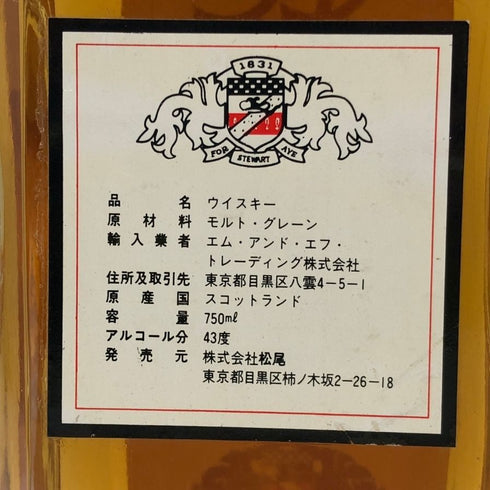 1831
FOR STEWART AYE
品名 ウイスキー
原材料 モルト・グレーン
輸入業者 エム・アンド・エフ・
トレーディング株式会社
住所及取引先 東京都目黒区八雲4-5-1
原産国 スコットランド
容量 750mℓ
アルコール分 43度
発売元 株式会社松尾
東京都目黒区柿ノ木坂2-26-18